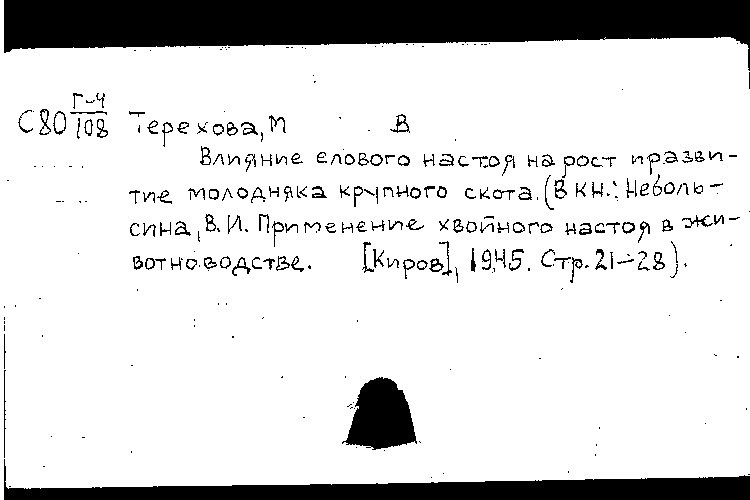 С80 Г-4/108 Терехова, М В
Влияние елового настоя на рост и разви-
тие молодняка крупного скота. (В кн.: Неболь-
сина, В. И. Применение хвойного настоя в жи-
вотноводстве. [Киров], 1945. Стр. 21-28).